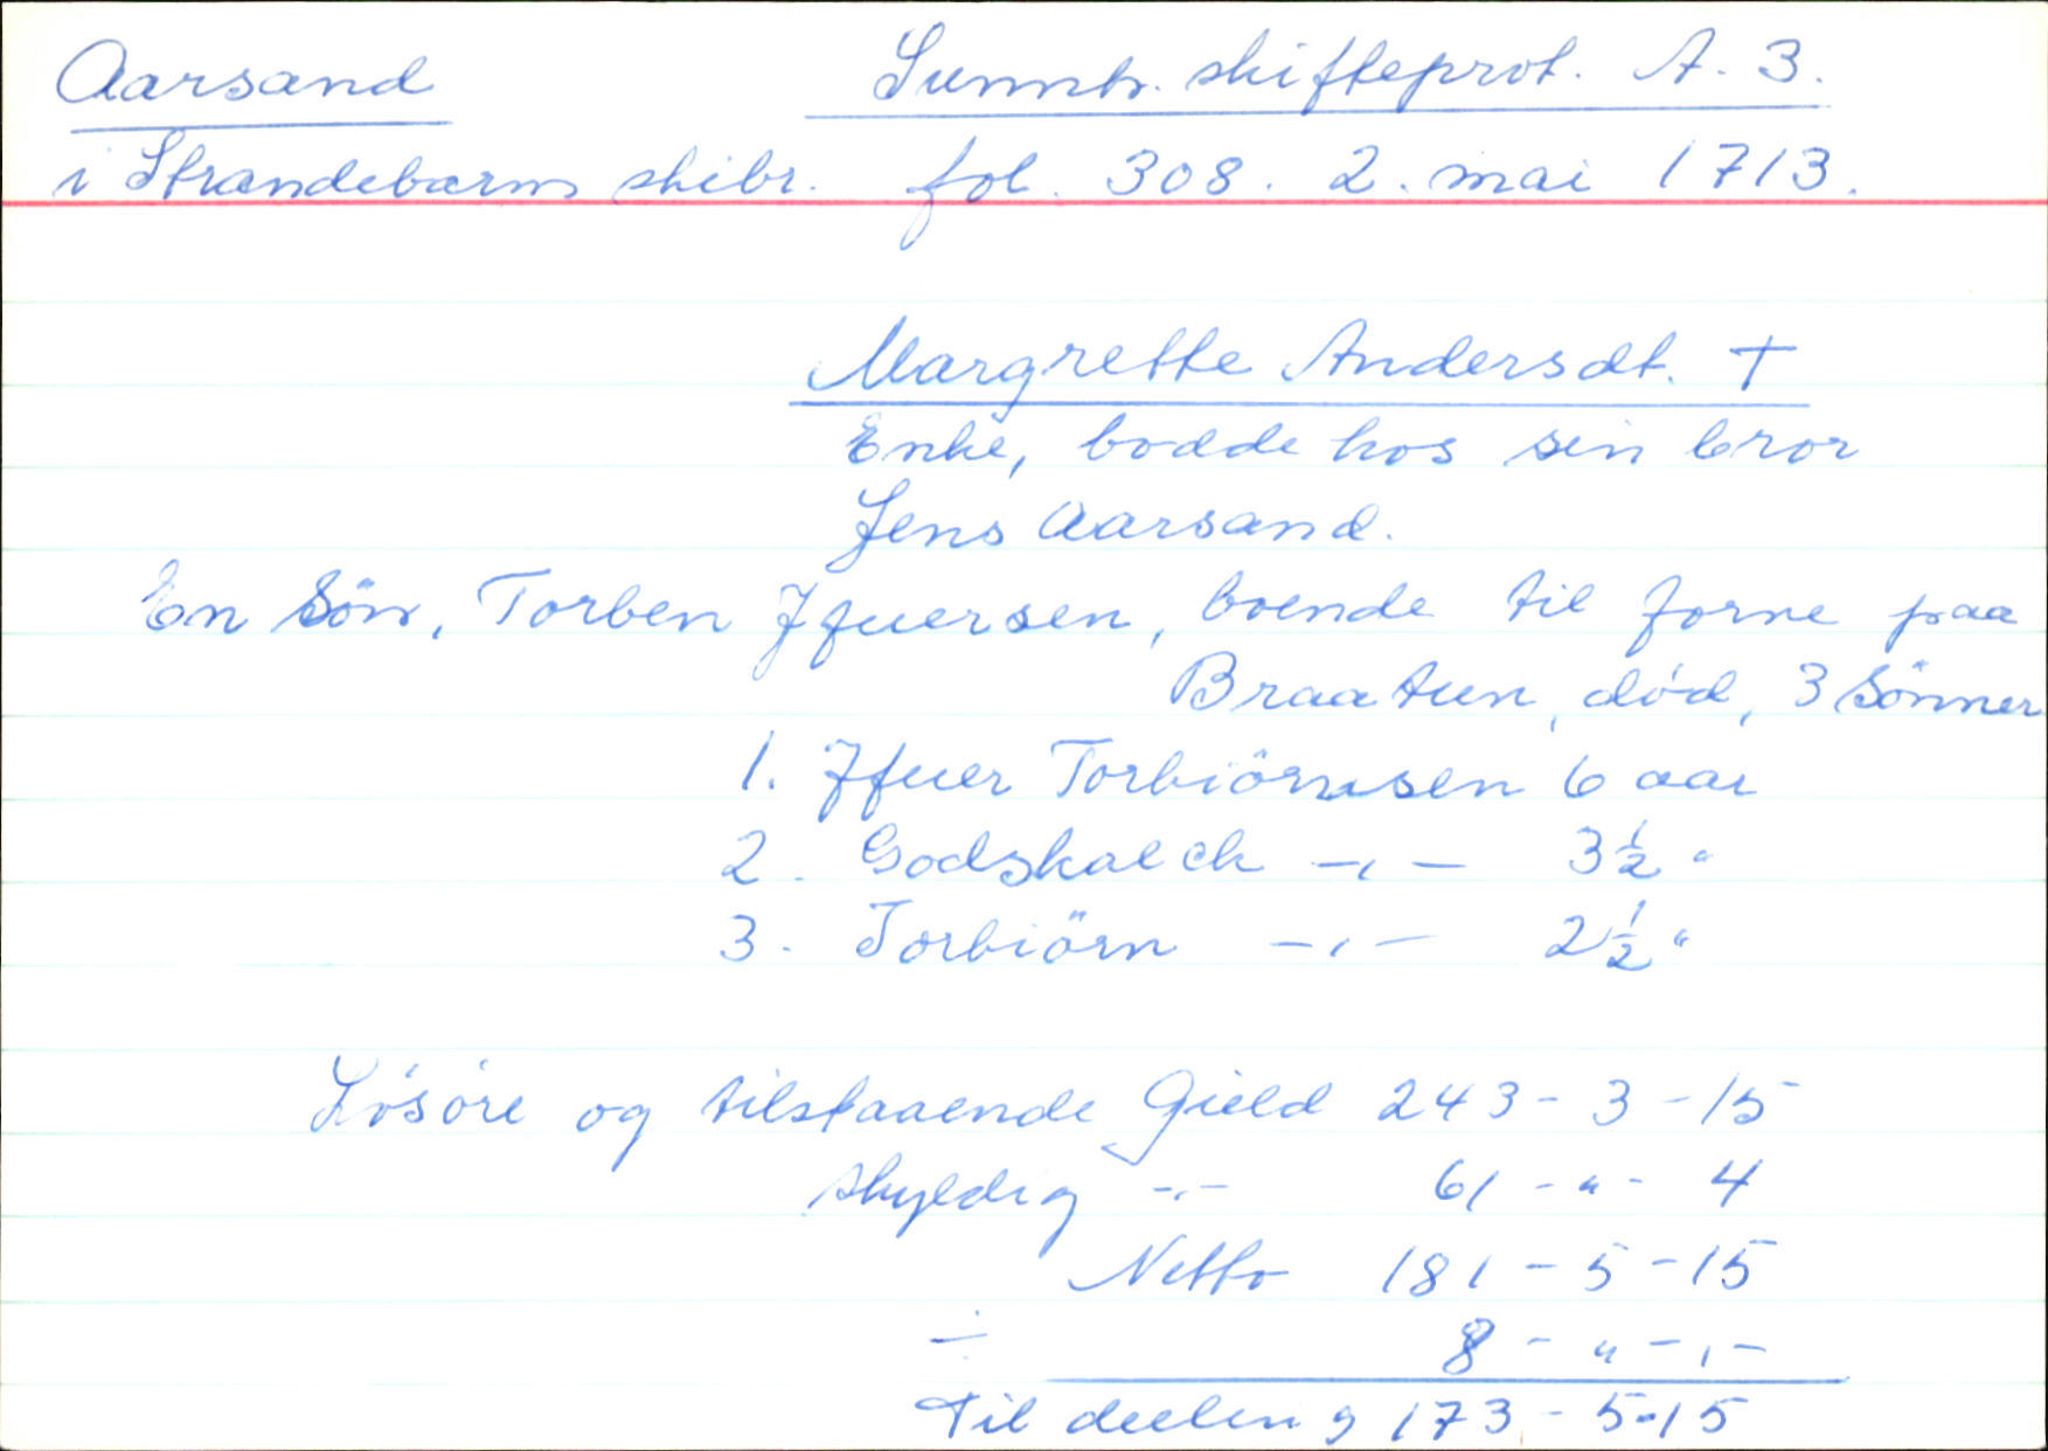 Aarsand Sunnh. skifteprot. A. 3.
i Strandebarms skibr. fol. 308. 2. mai 1713.
Margrette Andersdt. †
Enke, bodde hos sin bror
Jens Aarsand.
En Sön, Torben Jfuersen, boende til forne paa
Braatun, död, 3 Sönner
1. Jfuer Torbiörnsen 6 aar
2. Godskalch -„- 3½ "
3. Torbiörn -„- 2½ "
Lösöre og tilstaaende Gield 243 - 3 - 15
skyldig -„- 61 - " - 4
Netto 181 - 5 - 15
÷ 8 - " - „ -
Til deeling 173 - 5 - 15